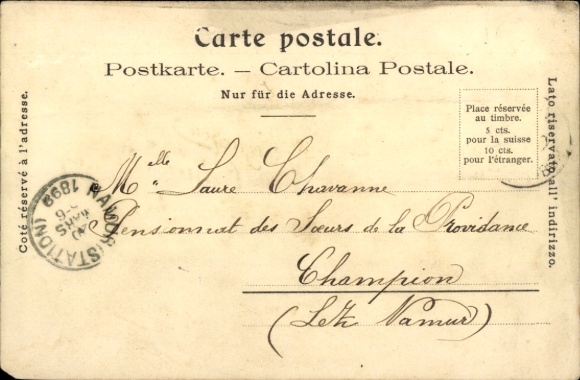 Carte postale.
Postkarte. – Cartolina Postale.
Nur für die Adresse.
Coté réservé à l'adresse.
Lato riservato all' indirizzo.
Place réservée
au timbre.
5 cts.
pour la suisse
10 cts.
pour l'étranger.
Melle Laure Chavanne
Pensionnat des Sœurs de la Providance
Champion
(Lez Namur)
NAMUR (STATION)
MARS
1899